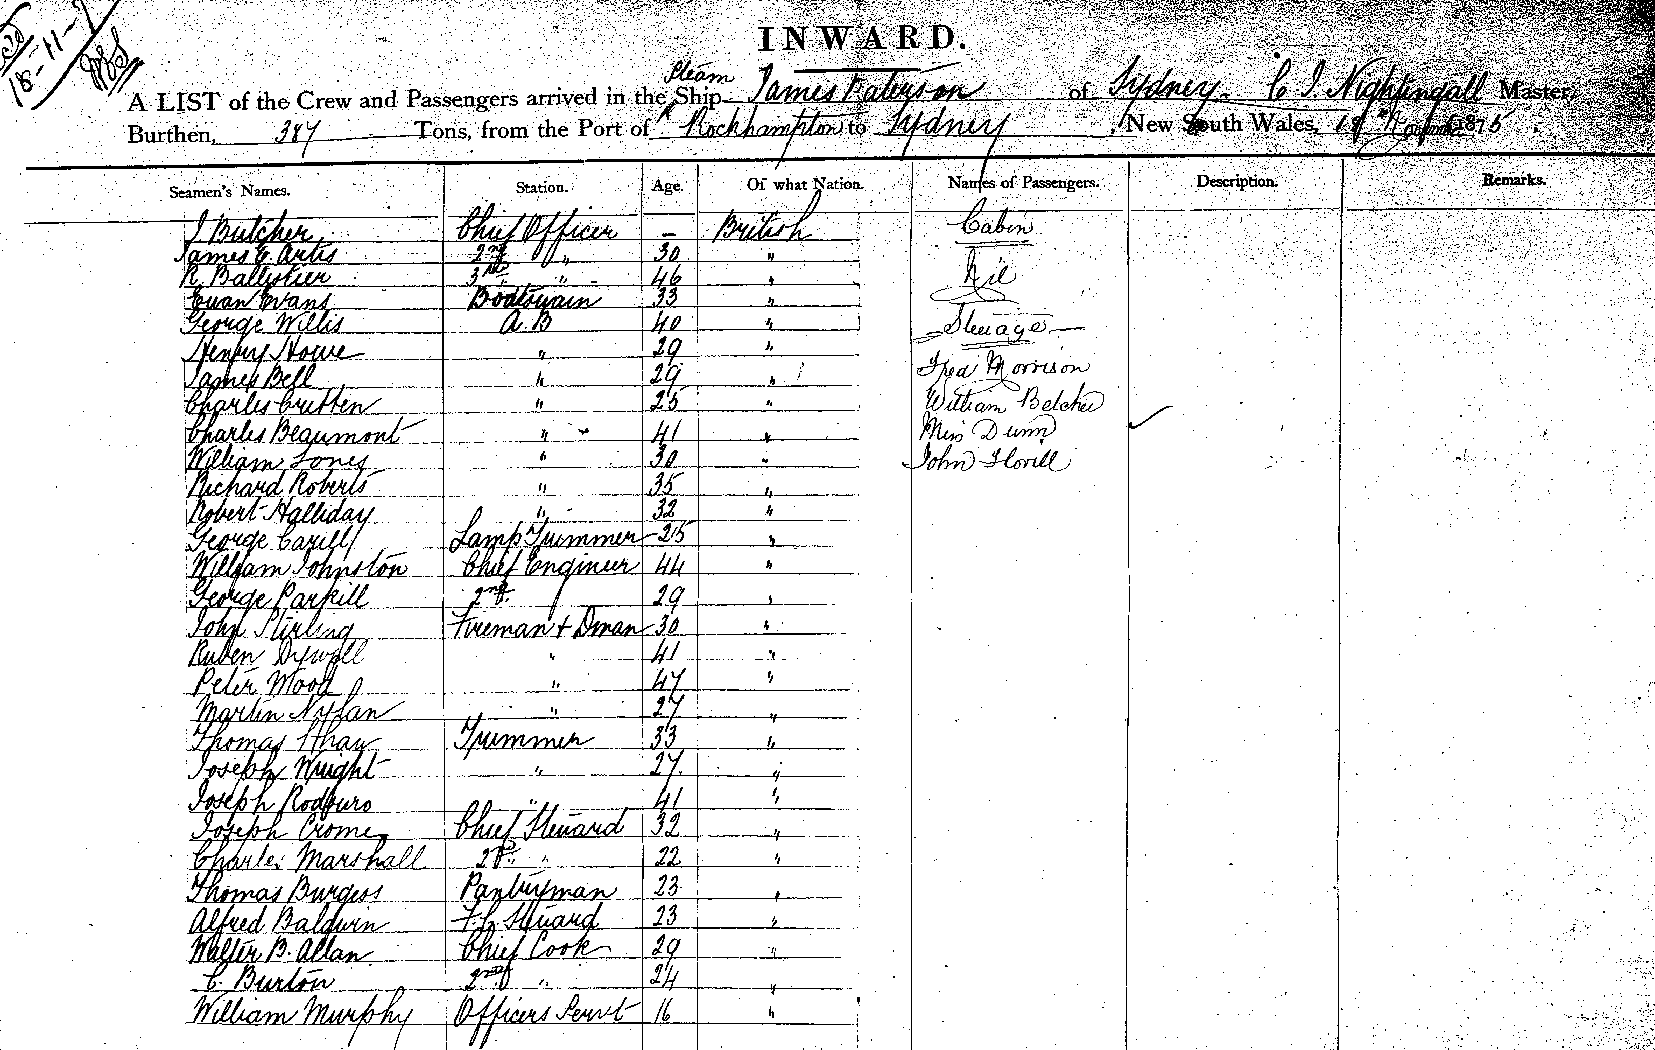 18-11-
INWARD.
A LIST of the Crew and Passengers arrived in the Steam Ship James Paterson of Sydney. C J Nightingall Master,
Burthen, 387 Tons, from the Port of Rockhampton to Sydney, New South Wales, 18th November 1875.
Seamen's Names. Station. Age. Of what Nation. Names of Passengers. Description. Remarks.
J Butcher Chief Officer — British Cabin
James C. Artis 2nd " 30 "
R Ballistier 3rd " 46 " Nil
Evan Evans Boatswain 33 "
George Willis A.B 40 " Steerage
Henry Howe " 29 "
James Bell " 29 " Fred Morrison
Charles Critten " 25 " William Belcher
Charles Beaumont " 41 " Miss Dunn
William Jones " 30 " John Hovill
Richard Roberts " 35 "
Robert Halliday " 32 "
George Carill Lamp Trimmer 25 "
William Johnston Chief Engineer 44 "
George Parkill 2nd. 29 "
John Stirling Fireman & Dman 30 "
Ruben " 41 "
Peter Wood " 47 "
Martin Nylan " 27 "
Thomas Shaw Trimmer 33 "
Joseph Wright " 27. "
Joseph " 41 "
Joseph Crome Chief Steward 32 "
Charles Marshall 2nd " 22 "
Thomas Burgess Pantryman 23 "
Alfred Baldwin F.C. Steward 23 "
Walter B. Allan Chief Cook 29 "
C. Burton 2nd " 24 "
William Murphy Officers Servt 16 "